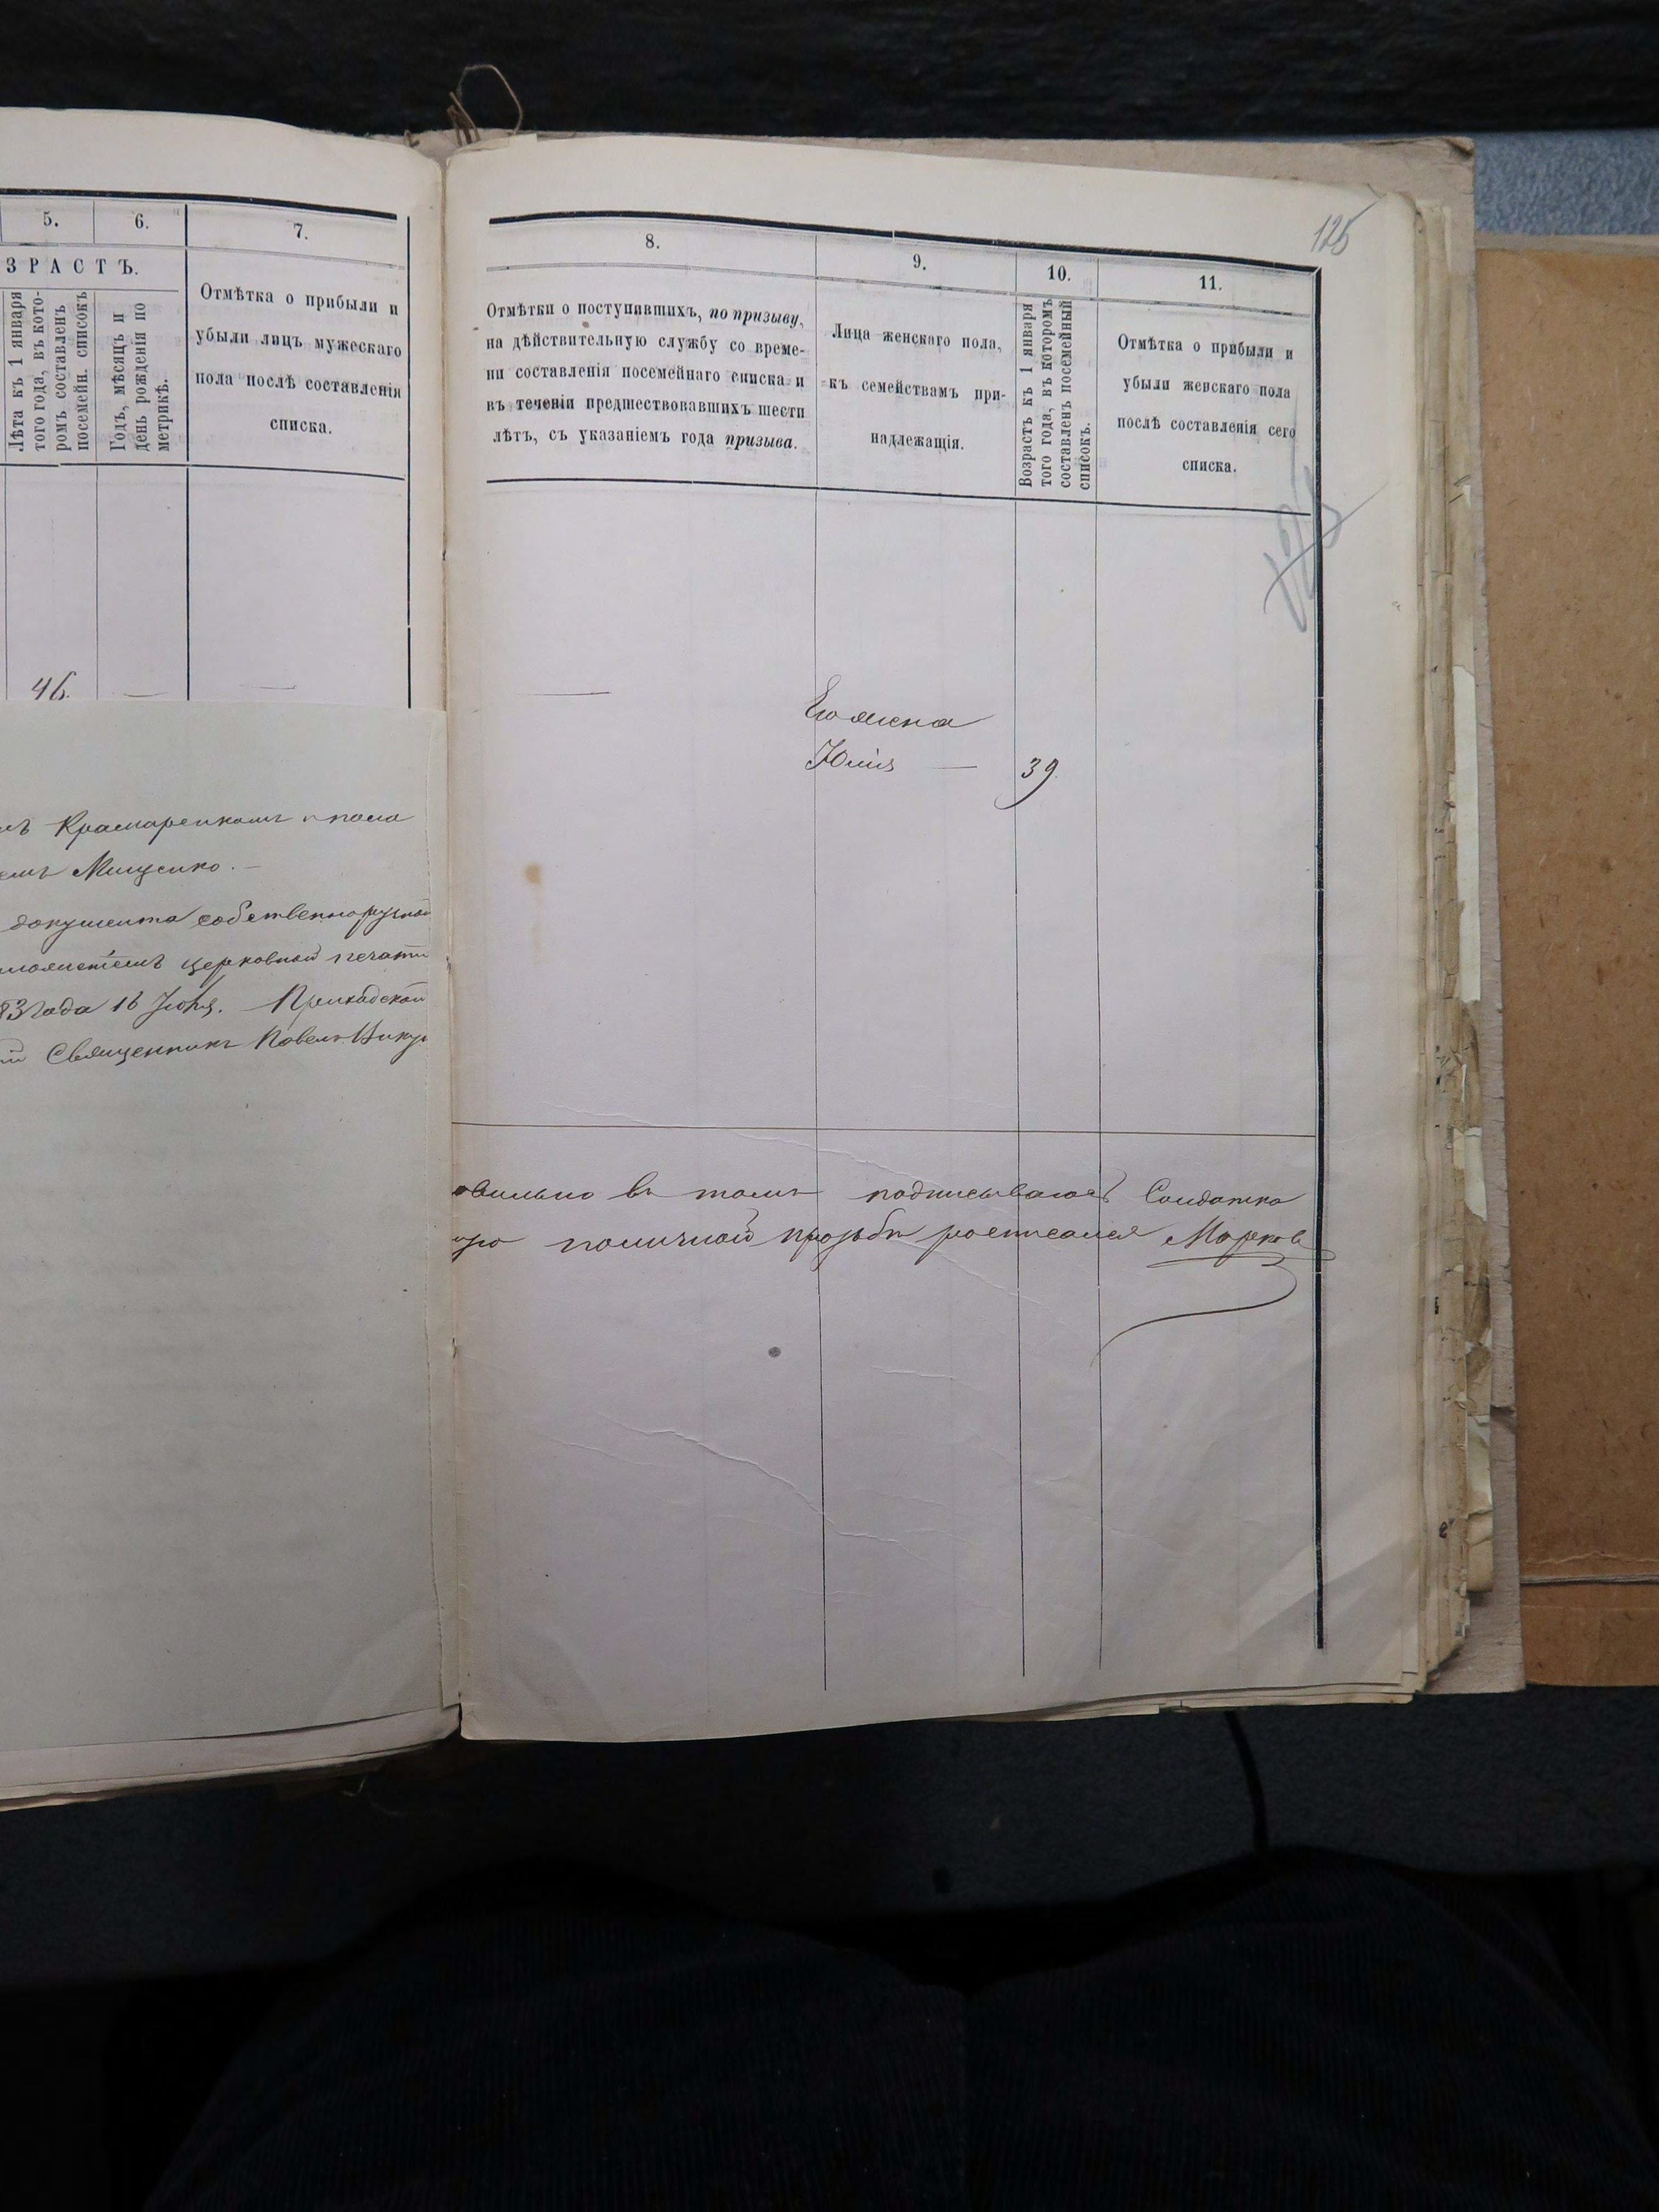 5.
6.
7.
ЗРАСТЪ.
Лѣта къ 1 января
того года, въ кото-
ромъ составленъ
посемейн. списокъ
Годъ, мѣсяцъ и
день рожденія по
метрикѣ.
Отмѣтка о прибыли и
убыли лицъ мужескаго
пола послѣ составленія
списка.
46.
Крамаренкомъ и
Мищенко.
документа собственноручной
церковной печати
83 года 16 Іюня.
Священникъ Павелъ
126
8.
9.
10.
11.
Отмѣтки о поступившихъ, по призыву,
на дѣйствительную службу со време-
ни составленія посемейнаго списка и
въ теченіи предшествовавшихъ шести
лѣтъ, съ указаніемъ года призыва.
Лица женскаго пола,
къ семействамъ при-
надлежащія.
Возрастъ къ 1 января
того года, въ которомъ
составленъ посемейный
списокъ.
Отмѣтка о прибыли и
убыли женскаго пола
послѣ составленія сего
списка.
Его жена
Юлія — 39
въ томъ подписываюсь Солдатка
поличной прозьбѣ росписался Марков